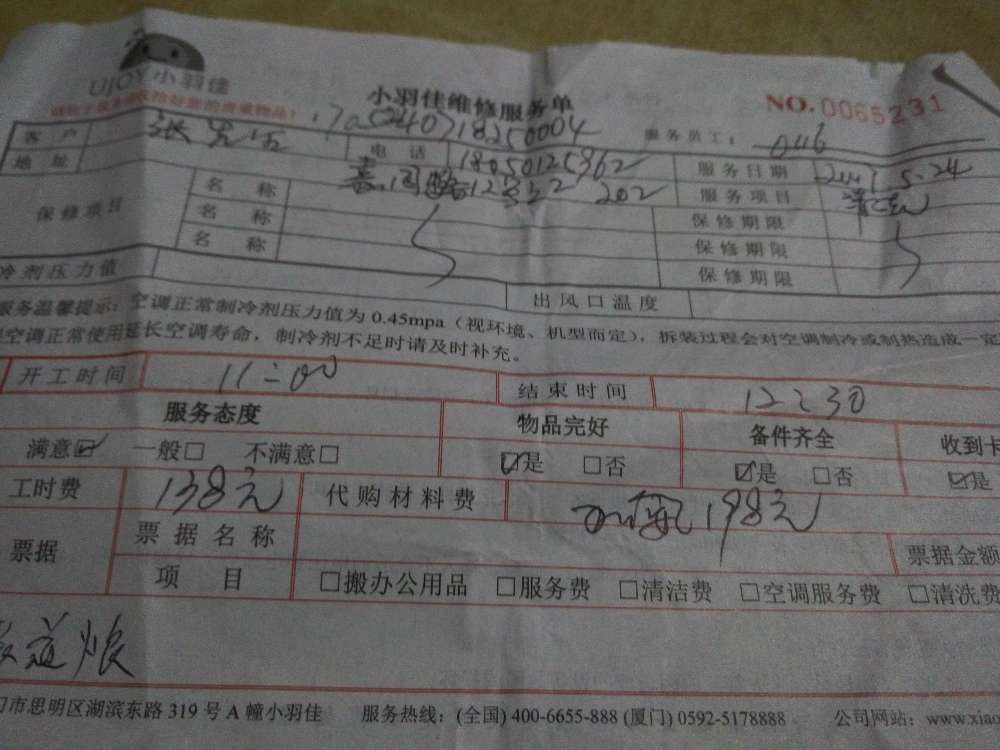 UJOY小羽佳
小羽佳维修服务单
NO.0065231
服务员工: 046
客户 张 电话 18050125962 服务日期 5.24
地址 202 服务项目
保修项目 名称 保修期限
名称 保修期限
名称 保修期限
冷剂压力值 出风口温度
服务温馨提示: 空调正常制冷剂压力值为 0.45mpa（视环境、机型而定），拆装过程会对空调制冷或制热造成一定
空调正常使用延长空调寿命，制冷剂不足时请及时补充。
开工时间 11:00 结束时间 12:30
服务态度 物品完好 备件齐全 收到卡
满意☑ 一般□ 不满意□ ☑是 □否 ☑是 □否 ☑是
工时费 138元 代购材料费 198元
票据 票据名称 票据金额
项目 □搬办公用品 □服务费 □清洁费 □空调服务费 □清洗费
门市思明区湖滨东路 319 号 A 幢小羽佳 服务热线: (全国) 400-6655-888 (厦门) 0592-5178888 公司网站: www.xiao